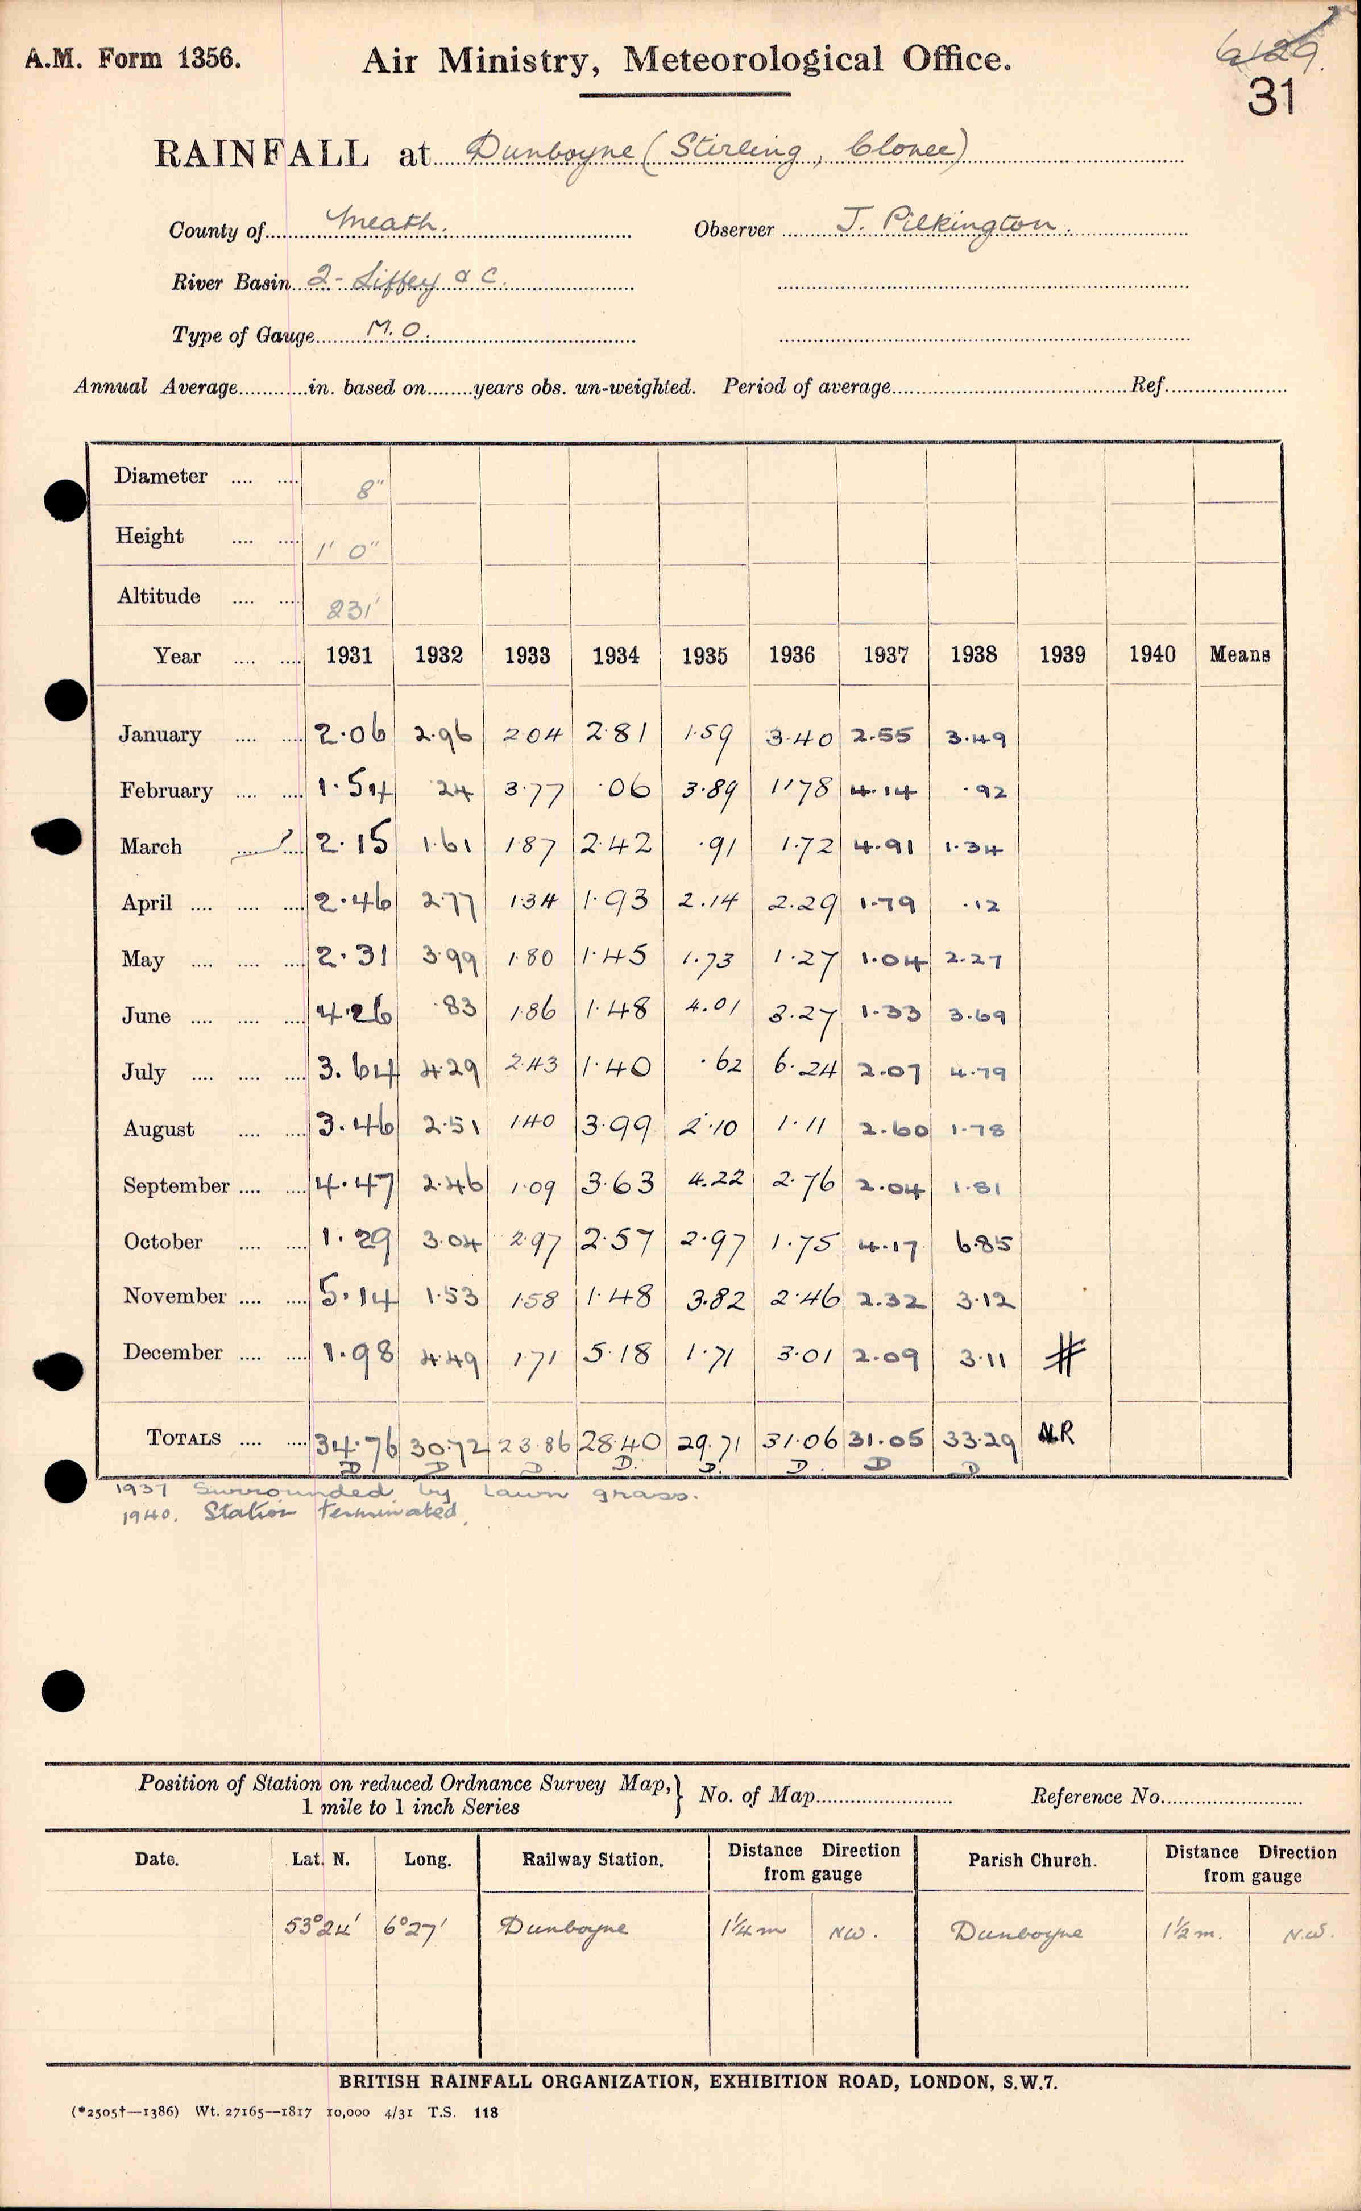 A.M. Form 1356.
Air Ministry, Meteorological Office.
6129.
31
RAINFALL at Dunboyne (Stirling, Clonee)
County of Meath. Observer J. Pilkington.
River Basin 2- Liffey &c.
Type of Gauge M.O.
Annual Average in. based on years obs. un-weighted. Period of average Ref.
Diameter .... .... 8"
Height .... .... 1' 0"
Altitude .... .... 231'
Year .... .... 1931 1932 1933 1934 1935 1936 1937 1938 1939 1940 Means
January .... .... 2.06 2.96 2.04 2.81 1.59 3.40 2.55 3.49
February .... .... 1.54 .24 3.77 .06 3.89 1.78 4.14 .92
March .... .... 2.15 1.61 1.87 2.42 .91 1.72 4.91 1.34
April .... .... .... 2.46 2.77 1.34 1.93 2.14 2.29 1.79 .12
May .... .... .... 2.31 3.99 1.80 1.45 1.73 1.27 1.04 2.27
June .... .... .... 4.26 .83 1.86 1.48 4.01 3.27 1.33 3.69
July .... .... .... 3.64 4.29 2.43 1.40 .62 6.24 2.07 4.79
August .... .... 3.46 2.51 1.40 3.99 2.10 1.11 2.60 1.78
September .... .... 4.47 2.46 1.09 3.63 4.22 2.76 2.04 1.81
October .... .... 1.29 3.04 2.97 2.57 2.97 1.75 4.17 6.85
November .... .... 5.14 1.53 1.58 1.48 3.82 2.46 2.32 3.12
December .... .... 1.98 4.49 1.71 5.18 1.71 3.01 2.09 3.11 #
TOTALS .... .... 34.76 30.72 23.86 28.40 29.71 31.06 31.05 33.29 NR
D D D. D. D. D. D D
1937 Surrounded by lawn grass.
1940. Station terminated.
Position of Station on reduced Ordnance Survey Map,} No. of Map Reference No.
1 mile to 1 inch Series
Date. Lat. N. Long. Railway Station. Distance Direction from gauge Parish Church. Distance Direction from gauge
53°24' 6°27' Dunboyne 1¼m NW. Dunboyne 1½m. N.W.
BRITISH RAINFALL ORGANIZATION, EXHIBITION ROAD, LONDON, S.W.7.
(*2505†—1386) Wt. 27165—1817 10,000 4/31 T.S. 118